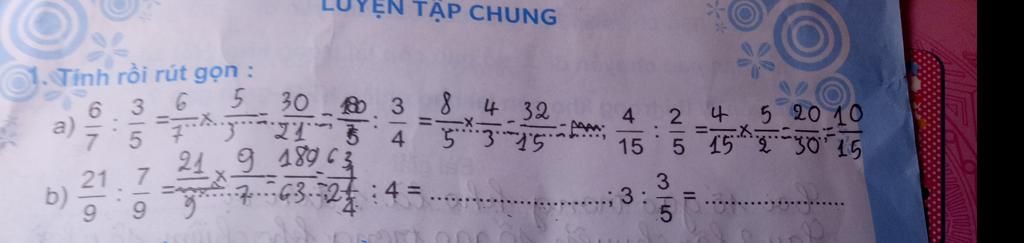 LUYỆN TẬP CHUNG
1. Tính rồi rút gọn :
a) 6/7 : 3/5 = 6/7 × 5/3 = 30/21 ; 8/5 : 3/4 = 8/5 × 4/3 = 32/15 ; 4/15 : 2/5 = 4/15 × 5/2 = 20/30 = 10/15
b) 21/9 : 7/9 = 21/9 × 9/7 = 189/63 = 63/21 ; 1/4 : 4 = .................... ; 3 : 3/5 = ....................